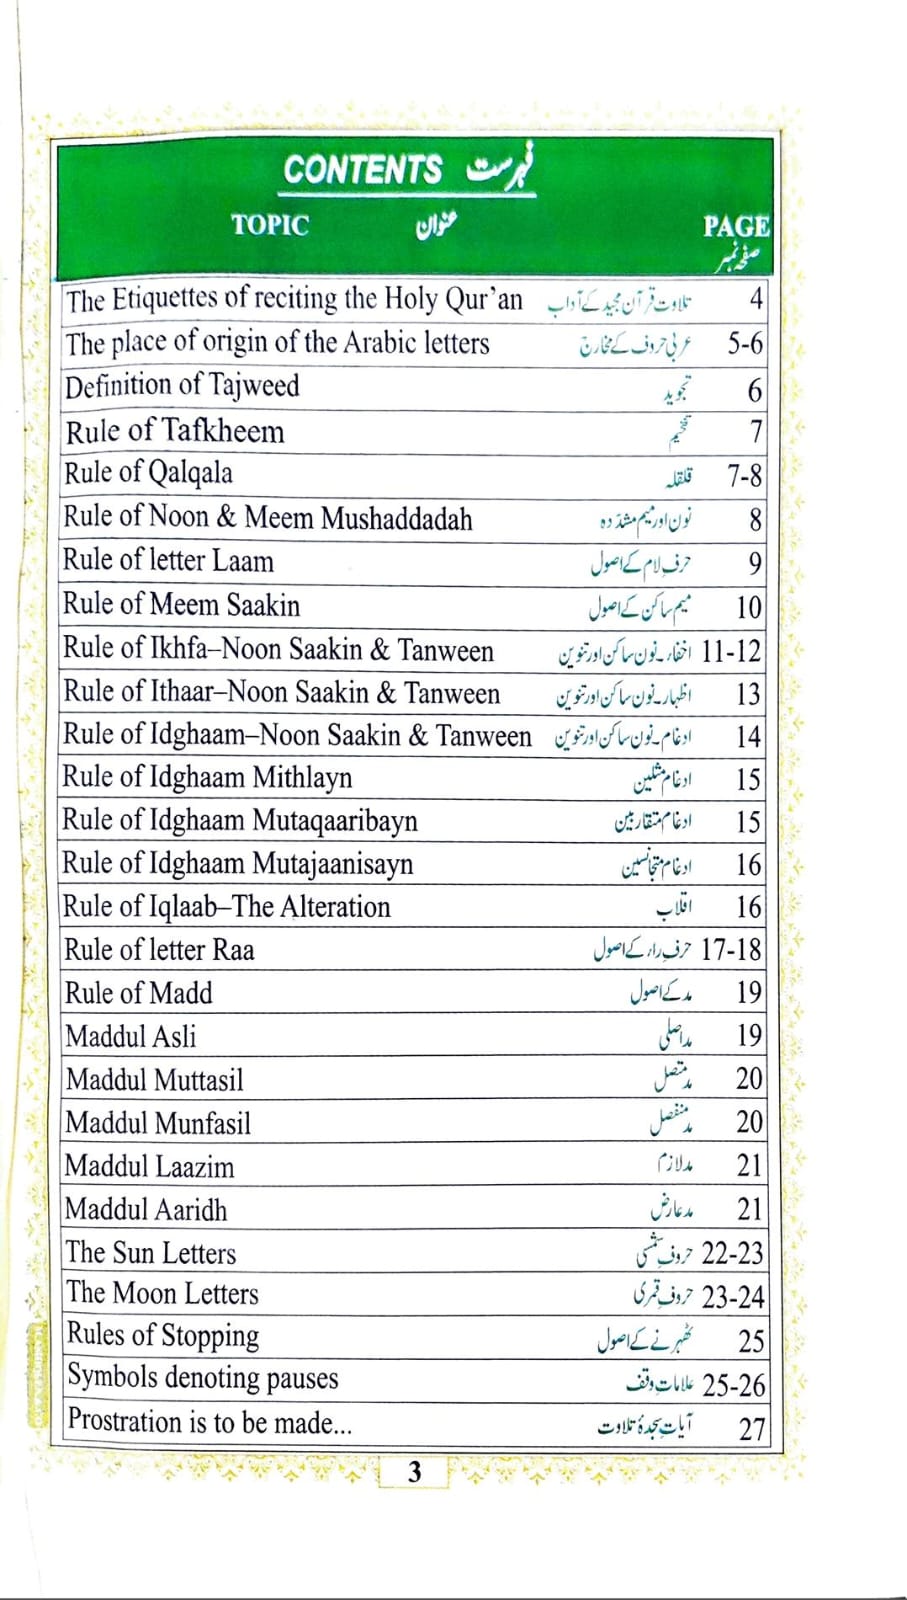 CONTENTS فہرست
TOPIC عنوان PAGE
صفحہ نمبر
The Etiquettes of reciting the Holy Qur’an تلاوت قرآن مجید کے آداب 4
The place of origin of the Arabic letters عربی حروف کے مخارج 5-6
Definition of Tajweed تجوید 6
Rule of Tafkheem تفخیم 7
Rule of Qalqala قلقلہ 7-8
Rule of Noon & Meem Mushaddadah نون اور میم مشدّدہ 8
Rule of letter Laam حرفِ لام کے اصول 9
Rule of Meem Saakin میم ساکن کے اصول 10
Rule of Ikhfa–Noon Saakin & Tanween اخفاء۔نون ساکن اور تنوین 11-12
Rule of Ithaar–Noon Saakin & Tanween اظہار۔نون ساکن اور تنوین 13
Rule of Idghaam–Noon Saakin & Tanween ادغام۔نون ساکن اور تنوین 14
Rule of Idghaam Mithlayn ادغام مثلین 15
Rule of Idghaam Mutaqaaribayn ادغام متقاربین 15
Rule of Idghaam Mutajaanisayn ادغام متجانسین 16
Rule of Iqlaab–The Alteration اقلاب 16
Rule of letter Raa حرفِ راء کے اصول 17-18
Rule of Madd مد کے اصول 19
Maddul Asli مد اصلی 19
Maddul Muttasil مد متصل 20
Maddul Munfasil مد منفصل 20
Maddul Laazim مد لازم 21
Maddul Aaridh مد عارض 21
The Sun Letters حروفِ شمسی 22-23
The Moon Letters حروفِ قمری 23-24
Rules of Stopping ٹھہرنے کے اصول 25
Symbols denoting pauses علاماتِ وقف 25-26
Prostration is to be made... آیاتِ سجدۂ تلاوت 27
3